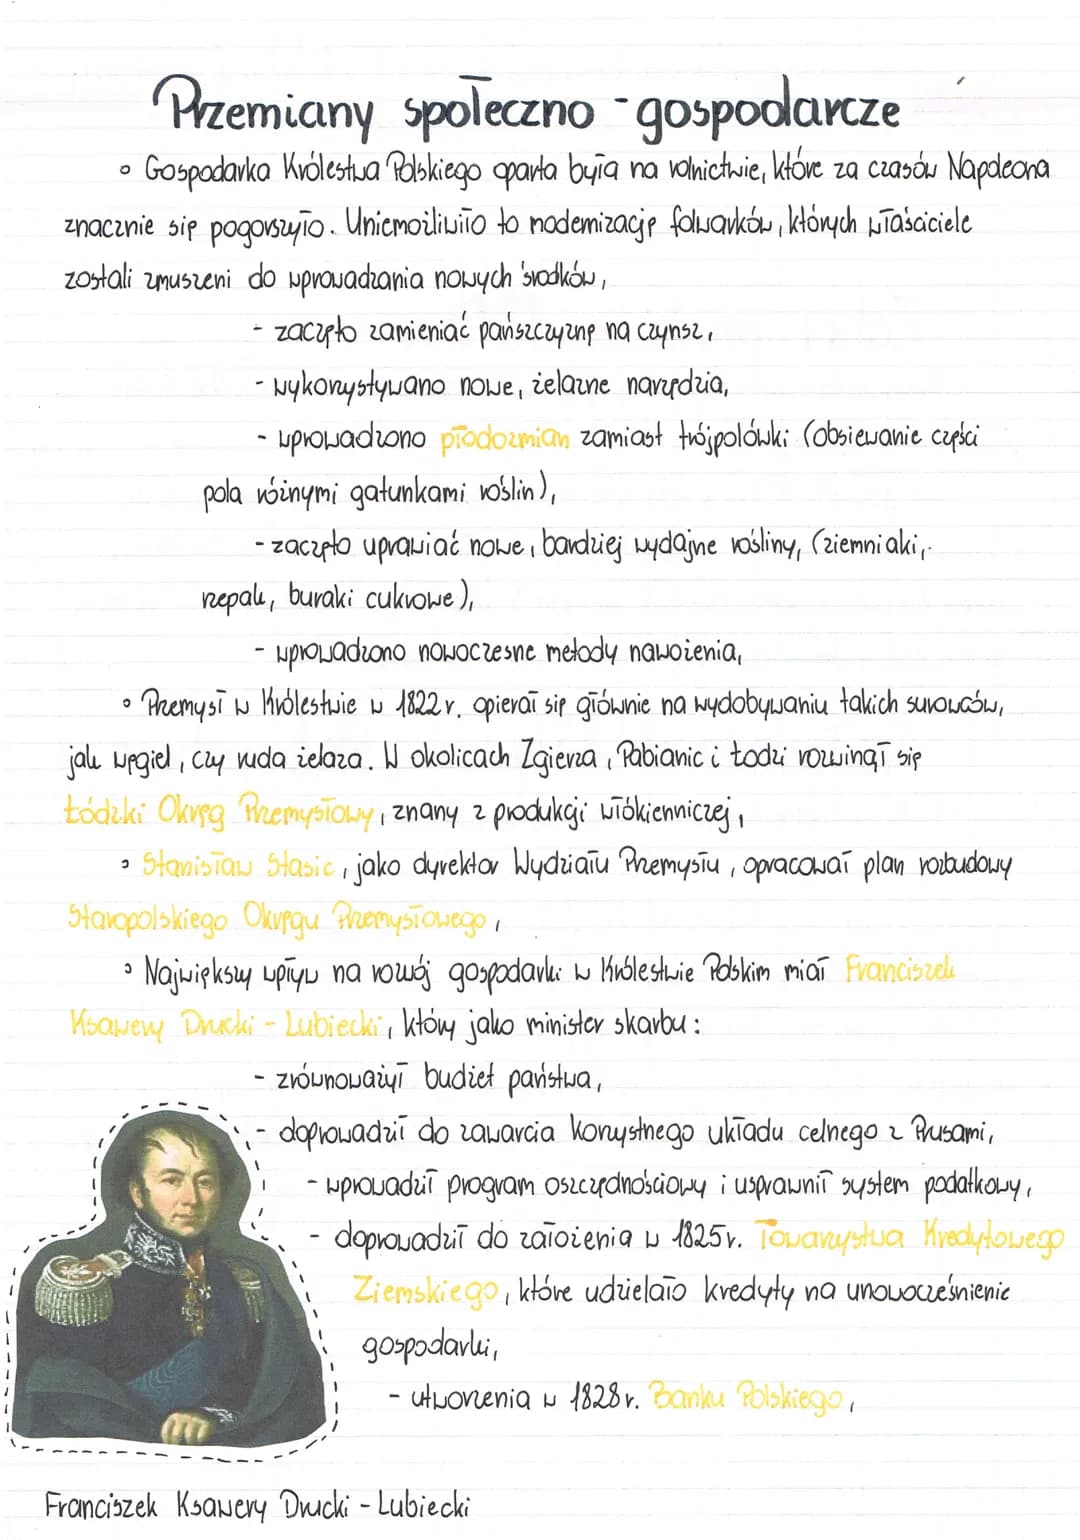 Przemiany społeczno - gospodarcze
• Gospodarka Królestwa Polskiego oparta była na rolnictwie, które za czasów Napoleona
znacznie się pogorszyło. Uniemożliwiło to modernizację folwarków, których właściciele
zostali zmuszeni do wprowadzania nowych środków,
- zaczęto zamieniać pańszczyznę na czynsz,
- wykorzystywano nowe, żelazne narzędzia,
- wprowadzono płodozmian zamiast trójpolówki (obsiewanie części
pola różnymi gatunkami roślin),
- zaczęto uprawiać nowe, bardziej wydajne rośliny, (ziemniaki,
rzepak, buraki cukrowe),
- wprowadzono nowoczesne metody nawożenia,
• Przemysł w Królestwie w 1822r. opierał się głównie na wydobywaniu takich surowców,
jak węgiel, czy ruda żelaza. W okolicach Zgierza, Pabianic i Łodzi rozwinął się
Łódzki Okręg Przemysłowy, znany z produkcji włókienniczej,
• Stanisław Stasic, jako dyrektor Wydziału Przemysłu, opracował plan rozbudowy
Staropolskiego Okręgu Przemysłowego,
• Największy wpływ na rozwój gospodarki w Królestwie Polskim miał Franciszek
Ksawery Drucki - Lubiecki, który jako minister skarbu:
- zrównoważył budżet państwa,
- doprowadził do zawarcia korzystnego układu celnego z Prusami,
- wprowadził program oszczędnościowy i usprawnił system podatkowy,
- doprowadził do założenia w 1825r. Towarzystwa Kredytowego
Ziemskiego, które udzielało kredyty na unowocześnienie
gospodarki,
- utworzenia w 1828r. Banku Polskiego,
Franciszek Ksawery Drucki - Lubiecki